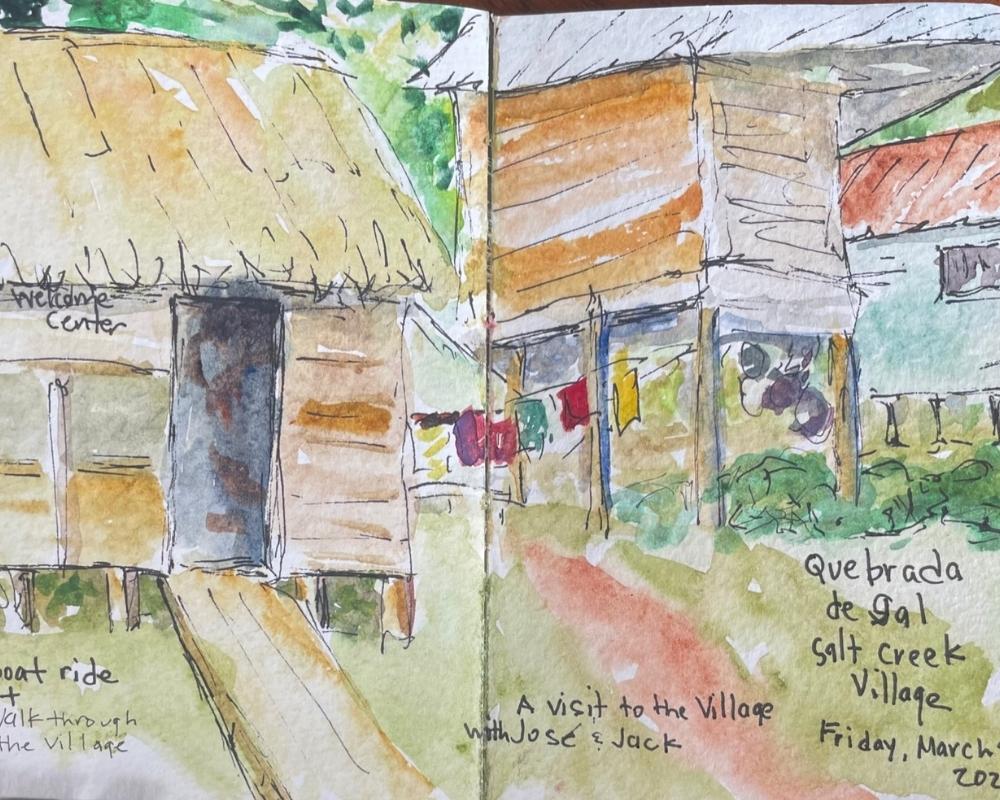 Welcome
Center
boat ride
+
Walk through
the Village
A visit to the Village
with José & Jack
Quebrada
de Sal
Salt Creek
Village
Friday, March
202